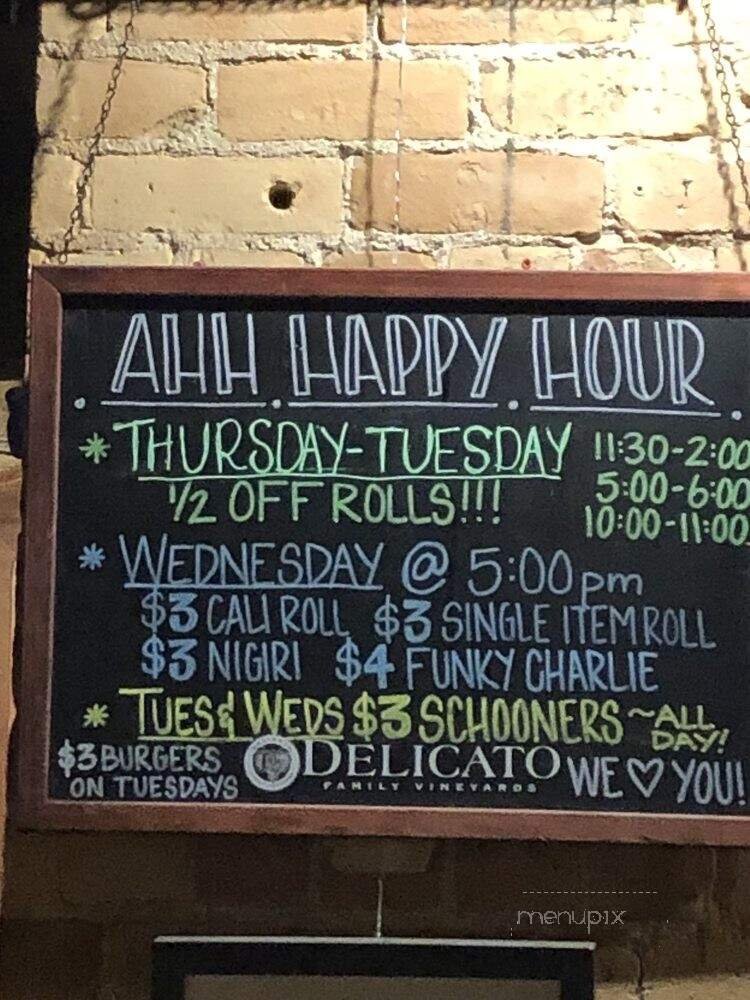 AHH HAPPY HOUR
* THURSDAY-TUESDAY 11:30-2:00
½ OFF ROLLS!!! 5:00-6:00
10:00-11:00
* WEDNESDAY @ 5:00pm
$3 CALI ROLL $3 SINGLE ITEM ROLL
$3 NIGIRI $4 FUNKY CHARLIE
* TUES & WEDS $3 SCHOONERS ~ALL DAY!
$3 BURGERS ON TUESDAYS
DELICATO
FAMILY VINEYARDS
WE ♡ YOU!
menupix